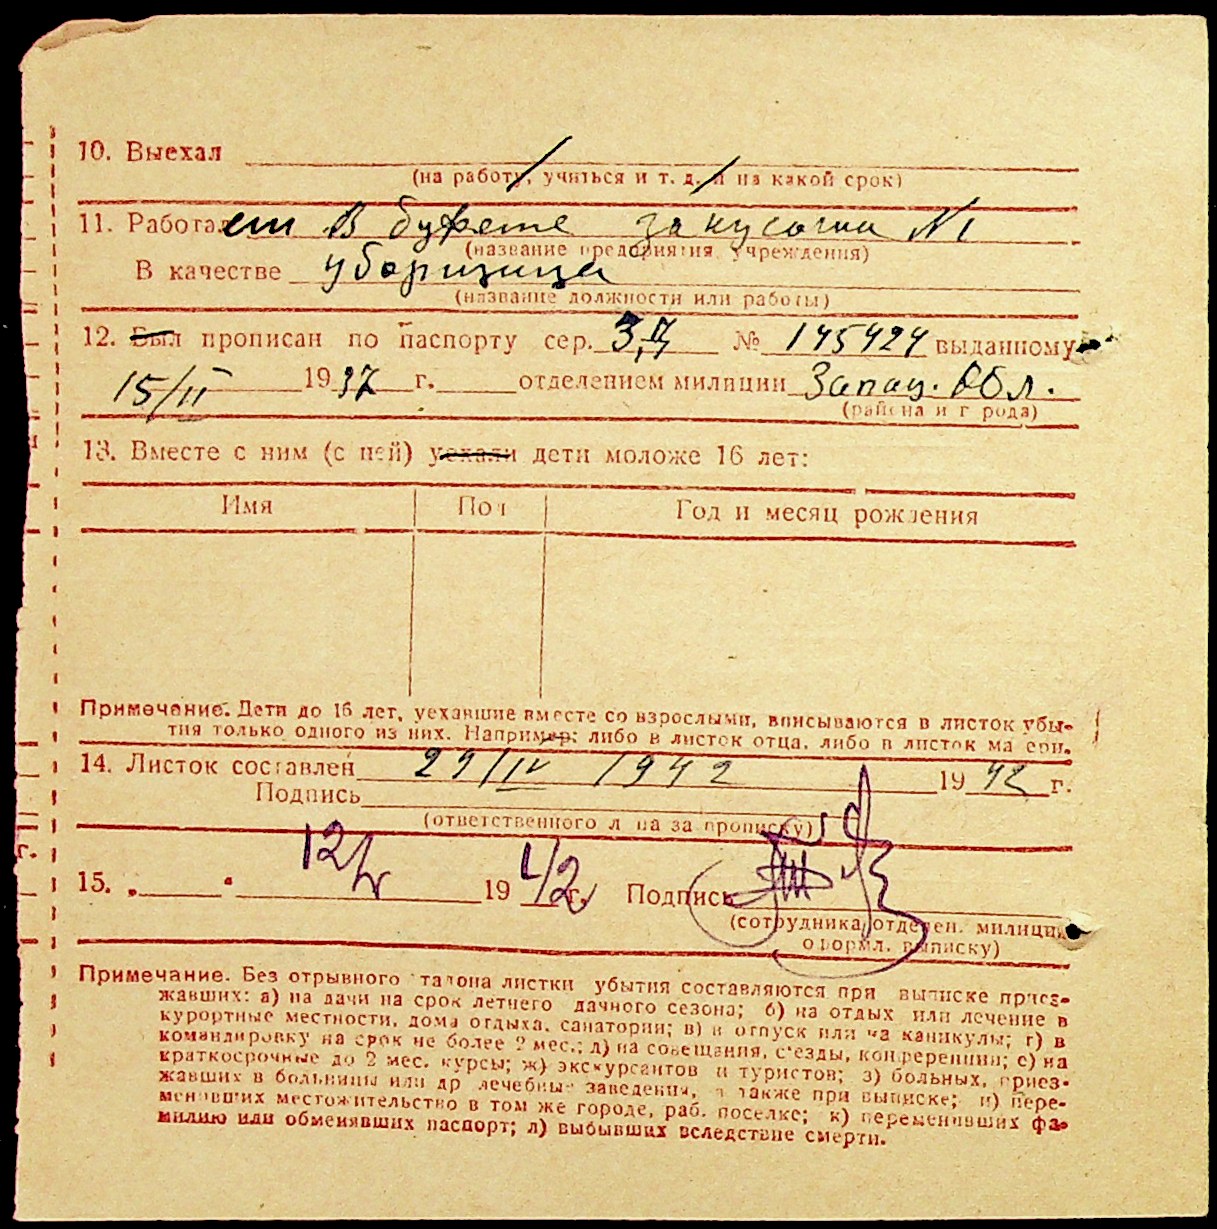 10. Выехал
(на работу, учиться и т. д. и на какой срок)
11. Работает в буфете закусочна №1
(название предприятия учреждения)
В качестве уборщица
(название должности или работы)
12. Был прописан по паспорту сер. З,Д № 145424 выданному
15/II 1937 г. отделением милиции Запад. Обл.
(района и города)
13. Вместе с ним (с ней) уехали дети моложе 16 лет:
Имя Пол Год и месяц рождения
Примечание. Дети до 16 лет, уехавшие вместе со взрослыми, вписываются в листок убы-
тия только одного из них. Например: либо в листок отца, либо в листок матери.
14. Листок составлен 29/IV 1942 1942 г.
Подпись
(ответственного лица за прописку)
15. „ “ 12/V 1942 г. Подпись
(сотрудника отделен. милиции
оформл. выписку)
Примечание. Без отрывного талона листки убытия составляются при выписке приез-
жавших: а) на дачи на срок летнего дачного сезона; б) на отдых или лечение в
курортные местности, дома отдыха, санатории; в) в отпуск или на каникулы; г) в
командировку на срок не более 2 мес.; д) на совещания, съезды, конференции; е) на
краткосрочные до 2 мес. курсы; ж) экскурсантов и туристов; з) больных, приез-
жавших в больницы или др лечебные заведения, а также при выписке; и) пере-
менивших местожительство в том же городе, раб. поселке; к) переменивших фа-
милию или обменявших паспорт; л) выбывших вследствие смерти.